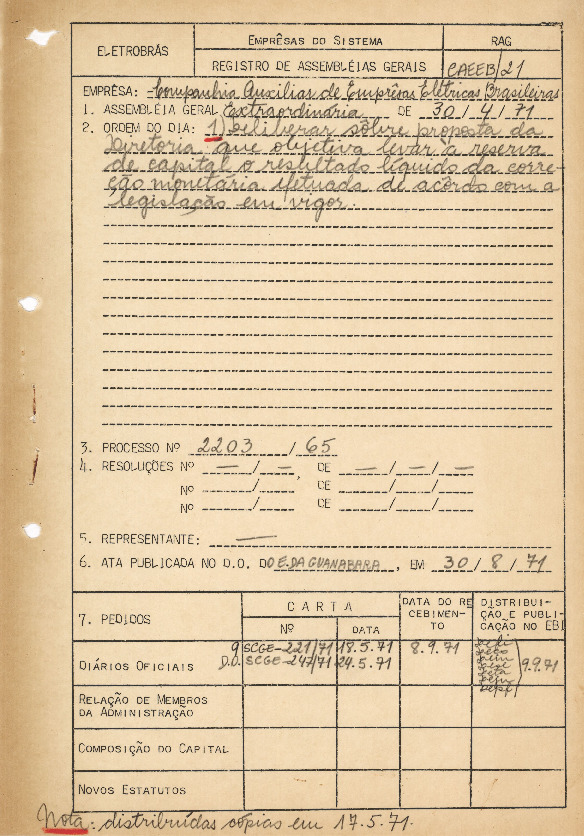 ELETROBRÁS
EMPRÊSAS DO SISTEMA
RAG
REGISTRO DE ASSEMBLÉIAS GERAIS
CAEEB/21
EMPRÊSA: Companhia Auxiliar de Emprêsas Elétricas Brasileiras
1. ASSEMBLÉIA GERAL Extraordinária DE 30/4/71
2. ORDEM DO DIA: 1) Deliberar sôbre proposta da
Diretoria que objetiva levar à reserva
de capital o resultado líquido da corre-
ção monetária efetuada de acôrdo com a
legislação em vigor.
3. PROCESSO Nº 2203 / 65
4. RESOLUÇÕES Nº — / — , DE — / — / —
Nº / DE / /
Nº / DE / /
5. REPRESENTANTE: —
6. ATA PUBLICADA NO D.O. DO E. DA GUANABARA, EM 30/8/71
7. PEDIDOS
CARTA
Nº
DATA
DATA DO RE
CEBIMEN-
TO
DISTRIBUI-
ÇÃO E PUBLI-
CAÇÃO NO EBI
DIÁRIOS OFICIAIS
9 SCGE-221/71 18.5.71 8.9.71
D.O. SCGE-247/71 24.5.71
9.9.71
RELAÇÃO DE MEMBROS
DA ADMINISTRAÇÃO
COMPOSIÇÃO DO CAPITAL
NOVOS ESTATUTOS
Nota: distribuídas cópias em 17.5.71.